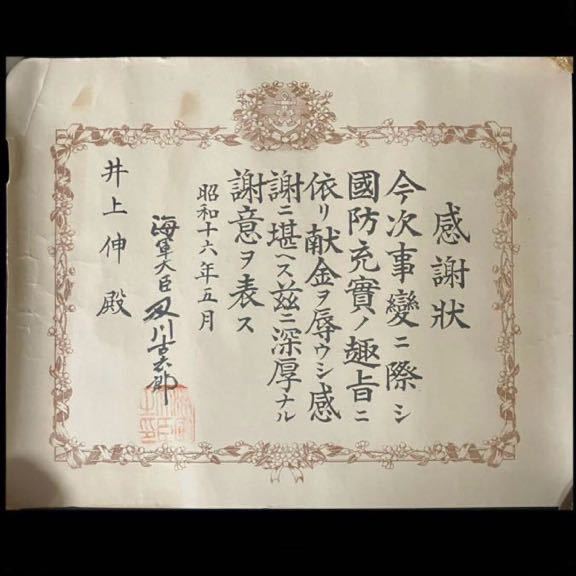 感謝狀
今次事變ニ際シ
國防充實ノ趣旨ニ
依リ献金ヲ辱ウシ感
謝ニ堪ヘス茲ニ深厚ナル
謝意ヲ表ス
昭和十六年五月
海軍大臣 及川古志郎
井上伸殿